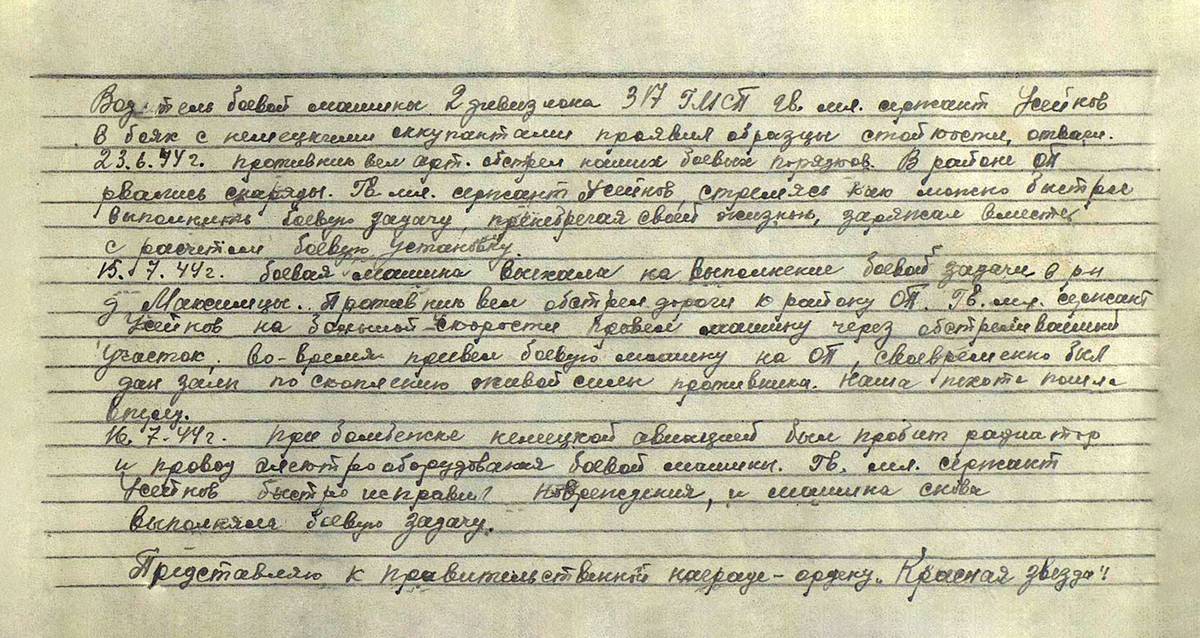 Водитель боевой машины 2 дивизиона 317 ГМСП гв. мл. сержант Усейнов
в боях с немецкими оккупантами проявил образцы стойкости, отваги.
23.6.44 г. противник вел арт. обстрел наших боевых порядков. В районе ОП
рвались снаряды. Гв. мл. сержант Усейнов, стремясь как можно быстрее
выполнить боевую задачу, пренебрегая своей жизнью, заряжал вместе
с расчетом боевую установку.
15.7.44 г. боевая машина выехала на выполнение боевой задачи в р-н
д. Максимцы. Противник вел обстрел дороги к району ОП. Гв. мл. сержант
Усейнов на большой скорости провел машину через обстреливаемый
участок. Во-время привел боевую машину на ОП, своевременно был
дан залп по скоплению живой силы противника. Наша пехота пошла
вперед.
16.7.44 г. при бомбежке немецкой авиацией был пробит радиатор
и провод электрооборудования боевой машины. Гв. мл. сержант
Усейнов быстро исправил повреждения, и машина снова
выполняла боевую задачу.
Представляю к правительственной награде - ордену „Красная звезда"